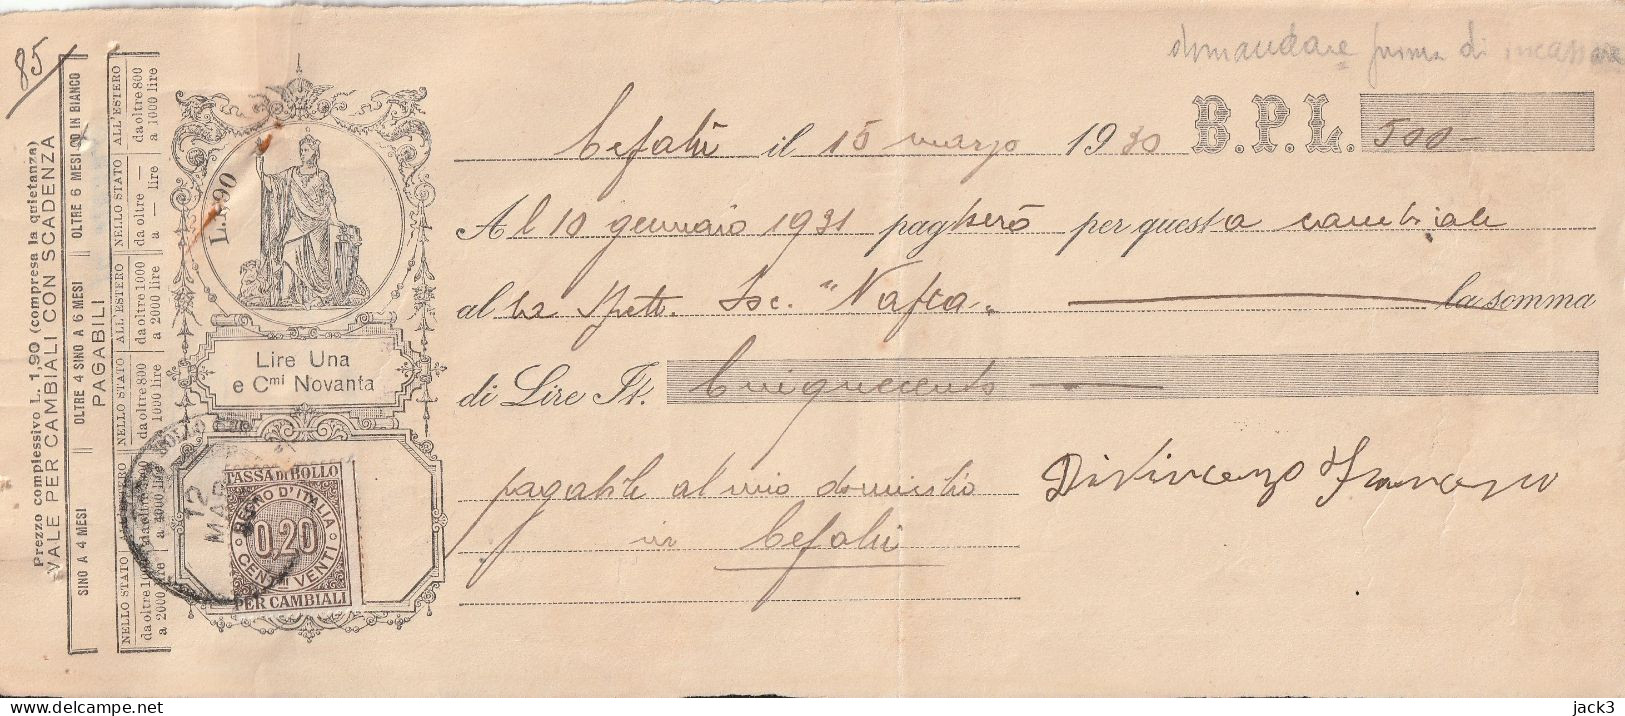 85
Prezzo complessivo L. 1,90 (compresa la quietanza)
VALE PER CAMBIALI CON SCADENZA
SINO A 4 MESI OLTRE 4 SINO A 6 MESI OLTRE 6 MESI OD IN BIANCO
PAGABILI
NELLO STATO ALL'ESTERO NELLO STATO ALL'ESTERO NELLO STATO ALL'ESTERO
da oltre 1000 da oltre 800 da oltre 1000 da oltre — da oltre 800
a 2000 lire a 1000 lire a 2000 lire a — lire a 1000 lire
L. 1,90
Lire Una
e Cmi Novanta
12
MAR
TASSA DI BOLLO
REGNO D'ITALIA
0,20
CENT.MI VENTI
PER CAMBIALI
domandare prima di incassare
Cefalù il 15 marzo 1930 B.P.L. 500 —
Al 10 gennaio 1931 pagherò per questa cambiale
al la Spett. Soc. "Nafta" la somma
di Lire It. Cinquecento
pagabile al mio domicilio
in Cefalù
Di Vincenzo Francesco
delcampe.net
jack3